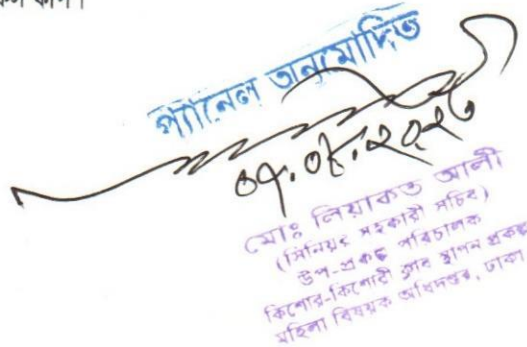 প্যানেল অনুমোদিত
মোঃ লিয়াকত আলী
(সিনিয়র সহকারী সচিব)
উপ-প্রকল্প পরিচালক
কিশোর-কিশোরী ক্লাব স্থাপন প্রকল্প
মহিলা বিষয়ক অধিদপ্তর, ঢাকা